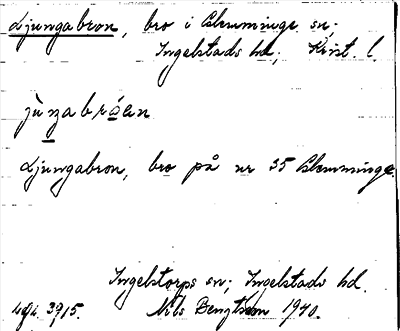 Ljungabron, bro i Glemminge sn;
Ingelstads hd, Krist l.
Ljungabron, bro på nr 35 Glemminge.
Ingelstorps sn; Ingelstads hd.
3915. Nils Bengtsson 1940.